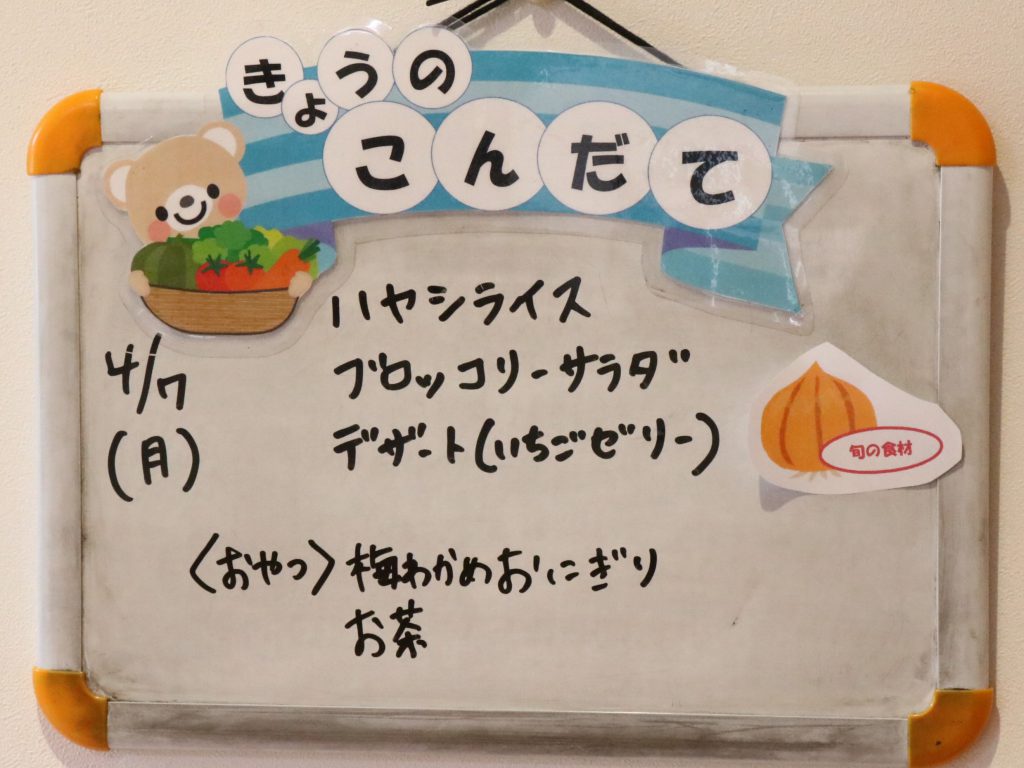 きょうの
こんだて
ハヤシライス
4/7
(月)
ブロッコリーサラダ
デザート(いちごゼリー)
旬の食材
〈おやつ〉梅わかめおにぎり
お茶